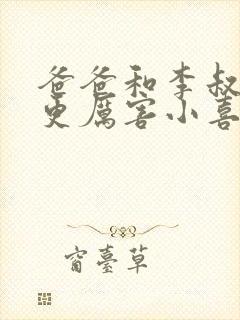 爸爸和李叔
更厉害小喜
窗臺草